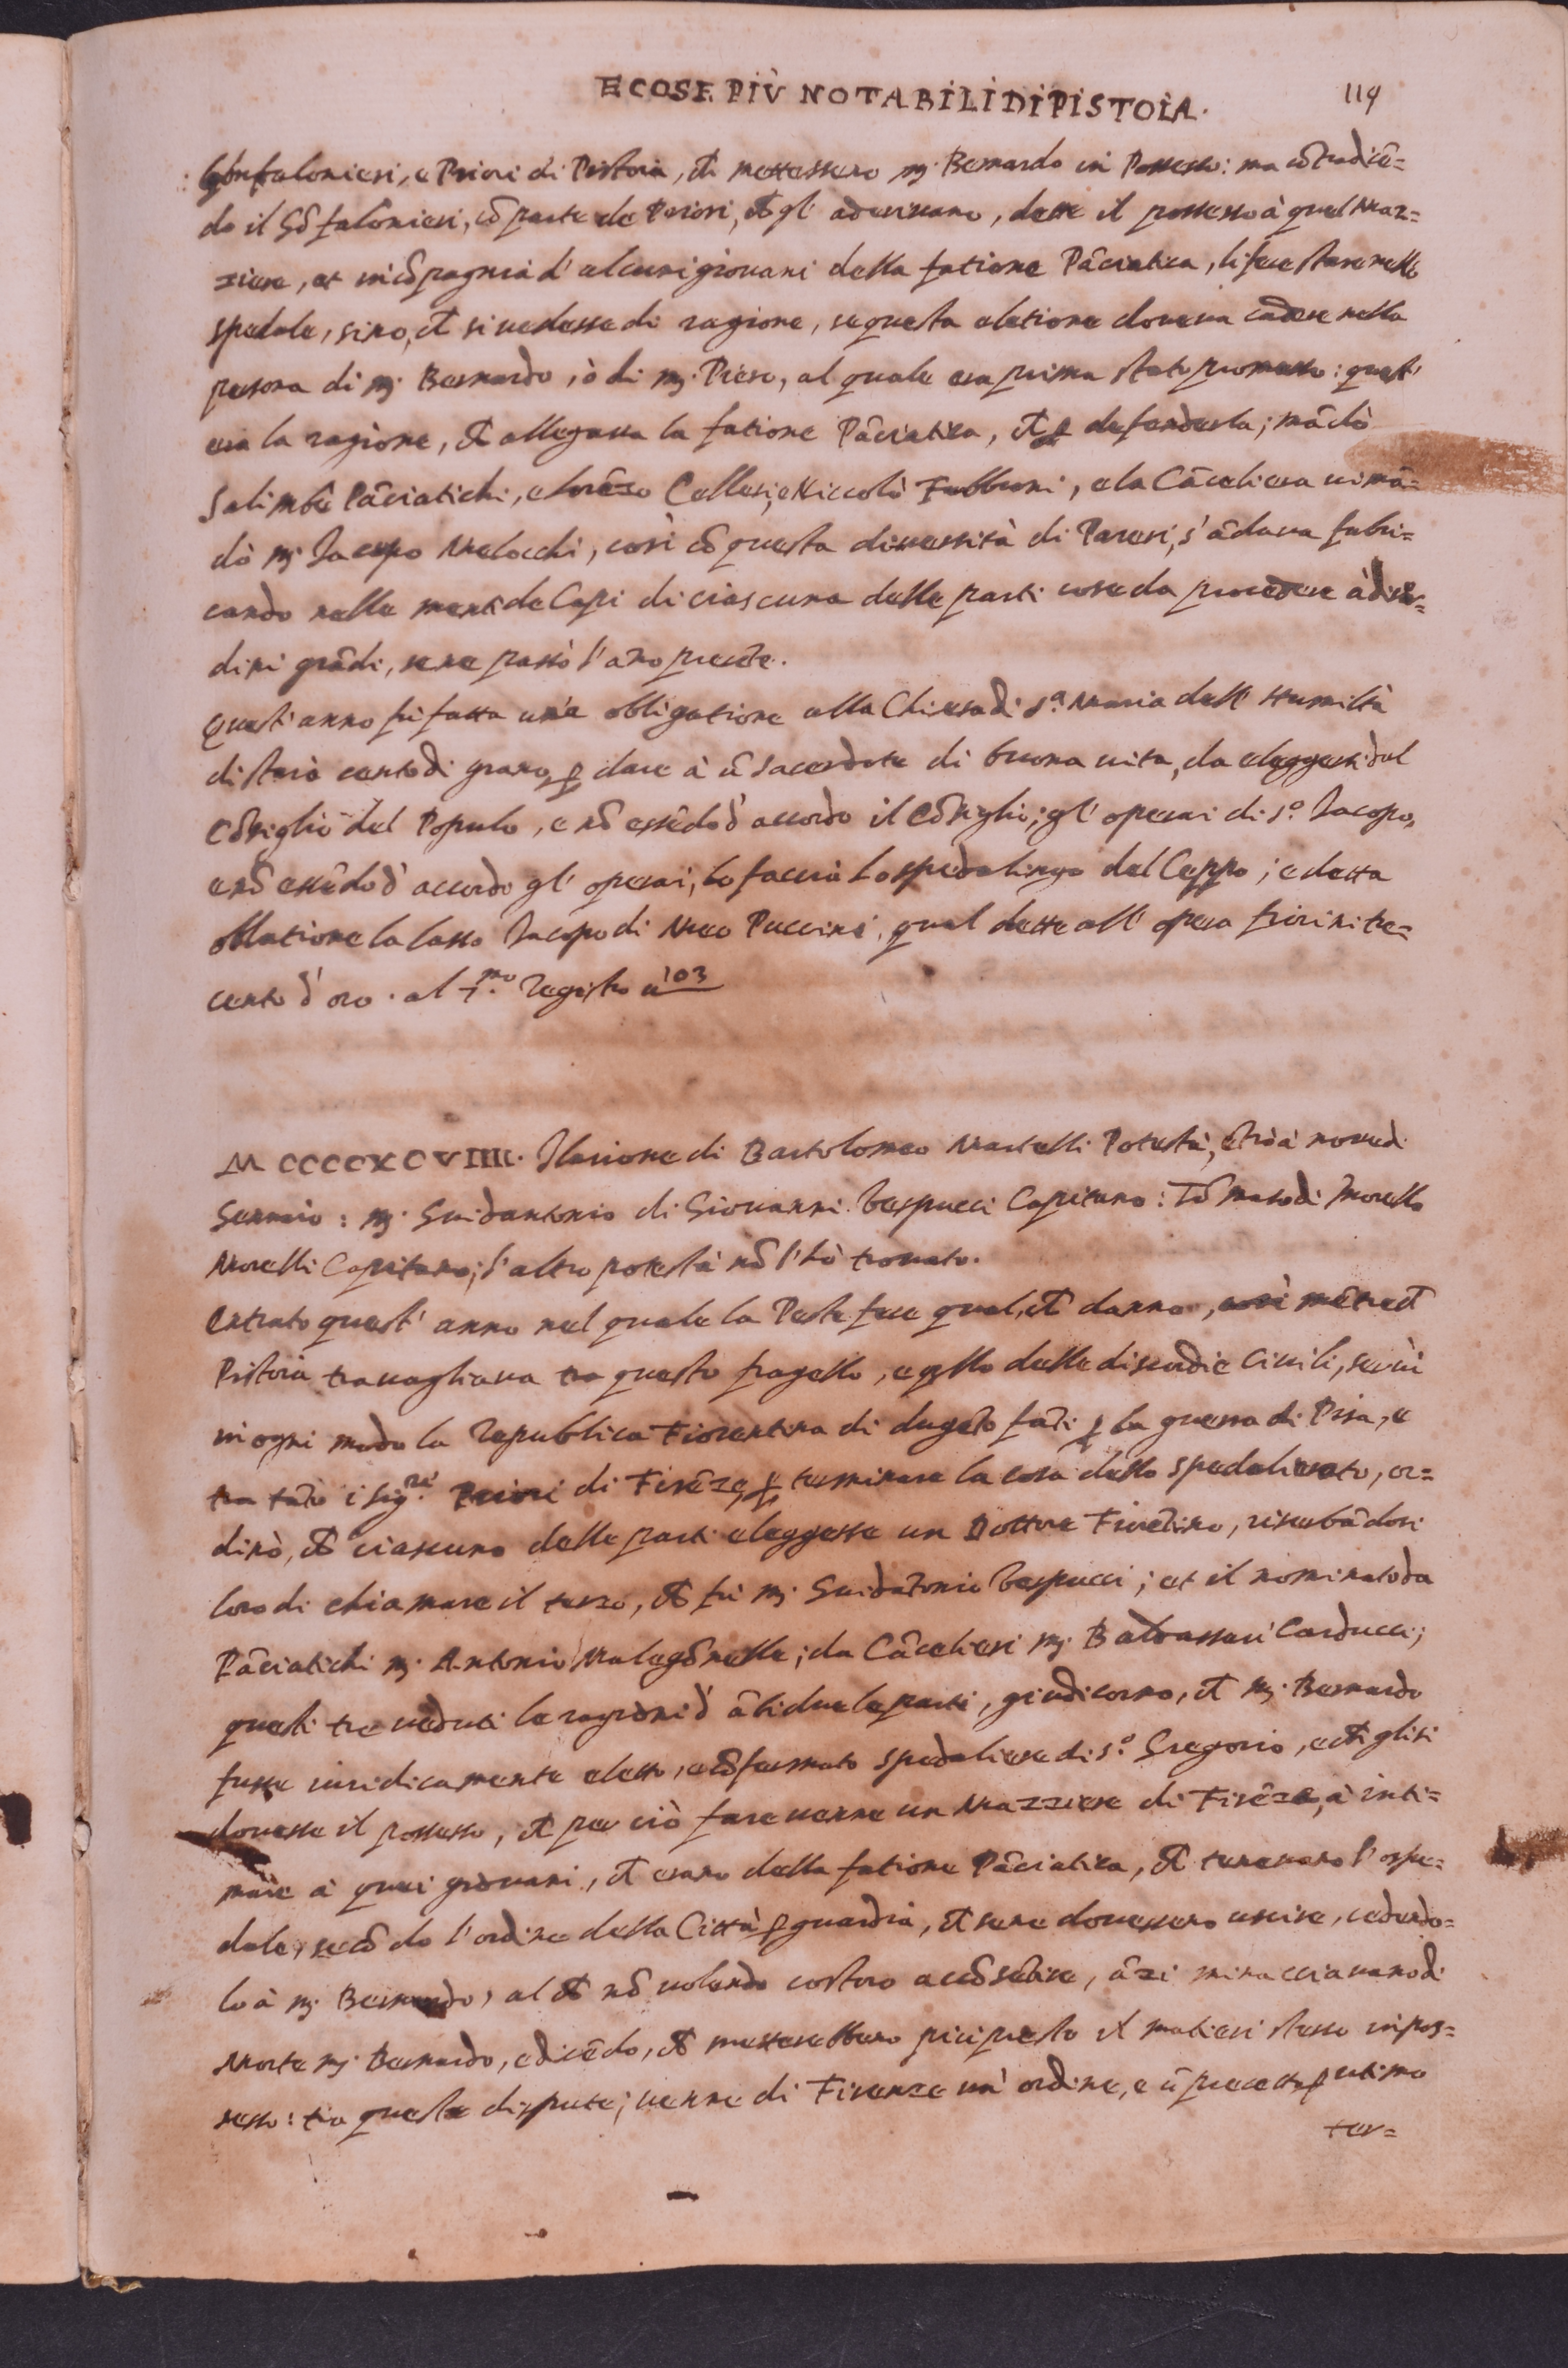 E COSE PIÙ NOTABILI DI PISTOIA.
119
Gonfalonieri, e Priori di Pistoia, ch mettessero mẜ. Bernardo in Possesso: ma cõtradicē=
do il Gõfalonieri, cõ parte de Priori, ch gl' aderivano, dette il possesso à quel Maz=
ziere, et in cõpagnia d' alcuni giovani della fatione Pãciatica, li fece stare nello
spedale, sino, ch si vedesse di ragione, se questa eletione doveva cadere nella
persona di mẜ. Bernardo, ò di mẜ. Piero, al quale era prima stato promesso: quest'
era la ragione, ch allegava la fatione Pãciatica, ch ꝑ defenderla; mãdò
Salimbē Pãciatichi, e Lorēzo Cellesi, e Niccolò Fabbroni, e la Cãceliera vi mã=
dò mẜ. Jacopo Melocchi, così cõ questa diversità di Pareri, s' ãdava fabri=
cando nelle menti de Capi di ciascuna delle parti cose da procedere à disor=
dini grãdi, se ne passò l' ãno presēte.
Quest' anno fù fatta un'a obligatione alla Chiesa di S.ᵃ Maria dell' Humiltà
di staia cento di grano, ꝑ dare à ũ sacerdote di buona vita, da eleggersi dal
Cõsiglio del Populo, e nõ essēdo d' accordo il Cõsiglio; gl' operai di S.º Jacopo,
e nõ essēdo d' accordo gl' operai, lo faccia lo spedalingo del Ceppo; e detta
obligatione la lasso Jacopo di Meo Puccini, qual dette all' opera fiorini tre=
cento d' oro. al 7.ᵐᵒ Registro à 103
MCCCCXCVIIII. Ilarione di Bartolomeo Martelli Potestà, ētrò à nove di
Gennaio: mẜ. Guidantonio di Giovanni Vespucci Capitano: Tõmaso di Morello
Morelli Capitano; l' altro potestà nõ l' hò trovato.
Entrato quest' anno nel quale la Peste fece qual, ch danno, così mētre ch
Pistoia travagliava tra questo fragello, e qllo delle discordie Civili, servì
in ogni modo la Republica Fiorentina di dugēto fãti ꝑ la guerra di Pisa, e
tra tãto i Sig.ʳⁱ Priori di Firēze, ꝑ terminare la cosa dello spedalierato, or=
dinò, ch ciascuno delle parti eleggesse un Dottore Fiorētino, riserbãdosi
loro di chiamare il terzo, ch fù mẜ. Guidãtonio Vespucci; et il nominato da
Pãciatichi mẜ. Antonio Malegõnelle; da Cãcelieri mẜ. Baldassari Carducci;
quali tre veduti le ragioni d' ãbi due le parti, giudicorno, ch mẜ. Bernardo
fusse iuridicamente eletto, e cõfermato spedaliere di S.º Gregorio, e ch gli si
dovesse il possesso, ch per ciò fare venne un Mazziere di Firēze, à inti=
mare à quei giovani, ch erano della fatione Pãciatica, ch tenevano l' ospe=
dale, secõdo l' ordine della Città ꝑ guardia, ch se ne dovessero uscire, cedendo=
lo à mẜ. Bernardo, al ch nõ volendo costoro accõsētire, ãzi minacciavano di
Morte mẜ. Bernardo, e dicēdo, ch metterebbero più presto il matieri stesso in pos=
sesso: tra queste dispute; venne di Firenze un' ordine, e ũ precetto ꝑ utimo
ter=